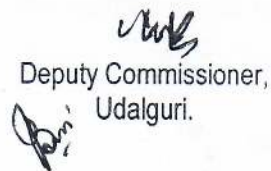 Deputy Commissioner,
Udalguri.